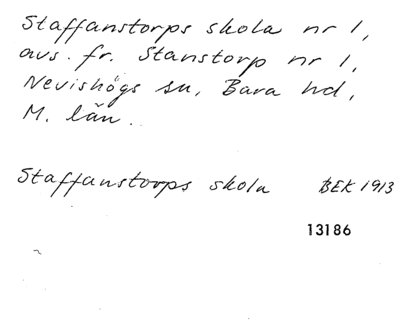 Staffanstorps skola nr 1,
avs. fr. Stanstorp nr 1,
Nevishögs sn, Bara hd,
M. län.
Staffanstorps skola BEK 1913
13186